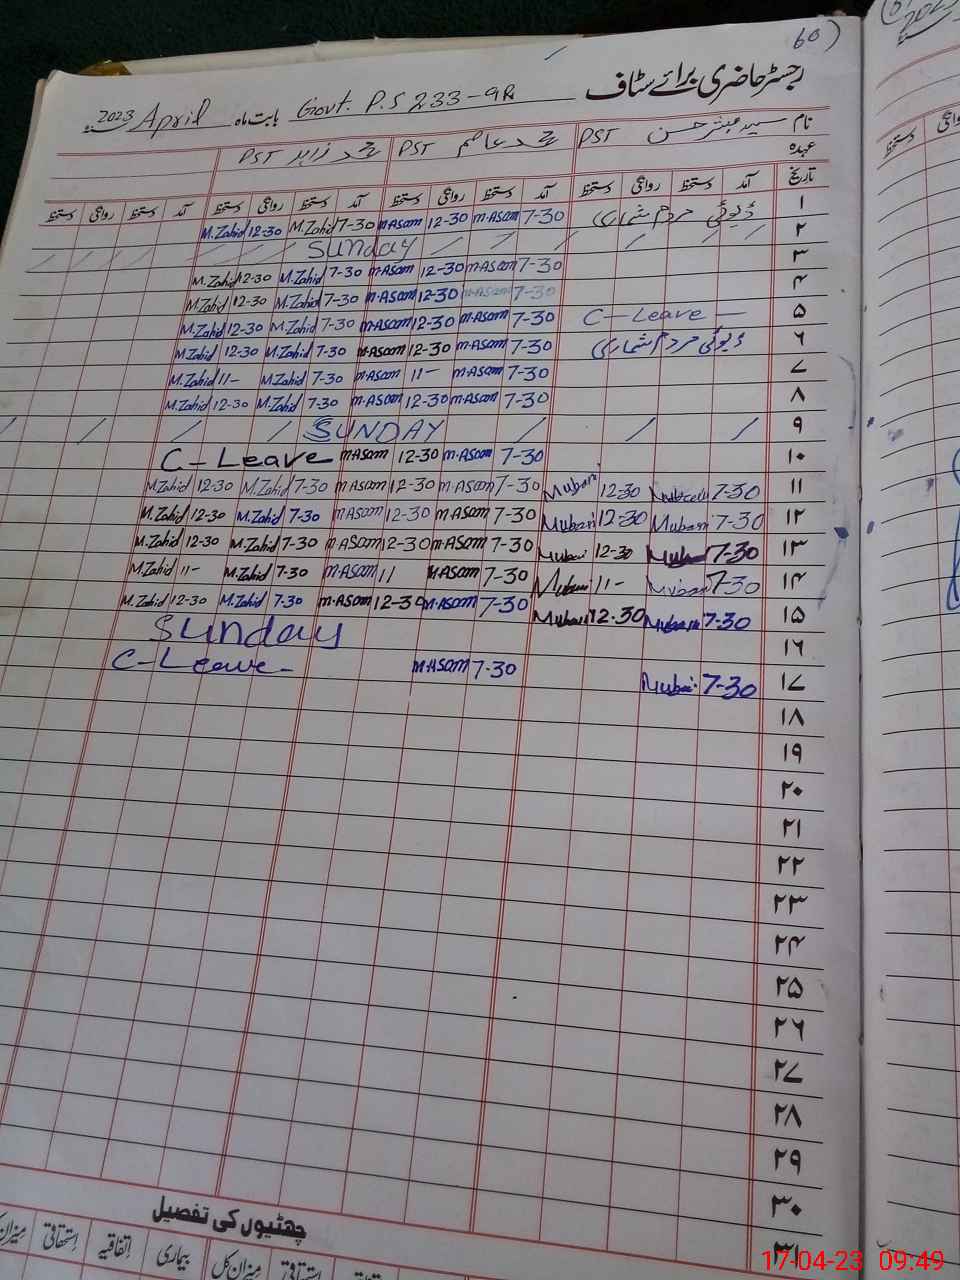 60)
رجسٹر حاضری برائے سٹاف
بابت ماہ Govt. P.S 233-9R April 2023
نام سید مبشر حسن PST محمد عاصم PST محمد زاہد PST
عہدہ
تاریخ آمد دستخط روانگی دستخط آمد دستخط روانگی دستخط آمد دستخط روانگی دستخط آمد دستخط روانگی دستخط
١ ڈیوٹی مردم شماری 7-30 M.ASam 12-30 M.ASam 7-30 M.Zahid 12-30 M.Zahid
٢ Sunday
٣ 7-30 M.ASam 12-30 M.ASam 7-30 M.Zahid 12-30 M.Zahid
۴ 7-30 M.ASam 12-30 M.ASam 7-30 M.Zahid 12-30 M.Zahid
۵ C-Leave 7-30 M.ASam 12-30 M.ASam 7-30 M.Zahid 12-30 M.Zahid
۶ ڈیوٹی مردم شماری 7-30 M.ASam 12-30 M.ASam 7-30 M.Zahid 12-30 M.Zahid
۷ 7-30 M.ASam 11- M.ASam 7-30 M.Zahid 11- M.Zahid
۸ 7-30 M.ASam 12-30 M.ASam 7-30 M.Zahid 12-30 M.Zahid
۹ SUNDAY
١٠ 7-30 M.ASam 12-30 M.ASam C-Leave
١١ 7-30 12-30 7-30 M.ASam 12-30 M.ASam 7-30 M.Zahid 12-30 M.Zahid
١٢ 7-30 12-30 7-30 M.ASam 12-30 M.ASam 7-30 M.Zahid 12-30 M.Zahid
١٣ 7-30 12-30 7-30 M.ASam 12-30 M.ASam 7-30 M.Zahid 12-30 M.Zahid
١۴ 7-30 11- 7-30 M.ASam 11 M.ASam 7-30 M.Zahid 11- M.Zahid
١۵ 7-30 12-30 7-30 M.ASam 12-30 M.ASam 7-30 M.Zahid 12-30 M.Zahid
١۶ Sunday
١۷ 7-30 7-30 M.ASam C-Leave-
١۸
١۹
٢٠
٢١
٢٢
٢٣
٢۴
٢۵
٢۶
٢۷
٢۸
٢۹
٣٠
٣١
چھٹیوں کی تفصیل
میزان کل بیماری اتفاقیہ استحقاقی
17-04-23 09:49